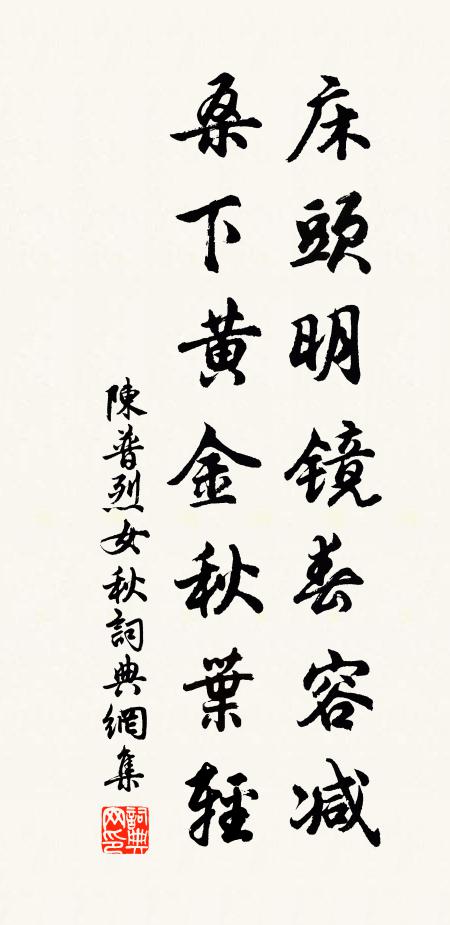 床頭明镜春容减
桑下黄金秋葉輕
陳普烈女秋詞典網集
詞典网印